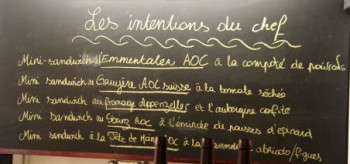 Les intentions du chef
Mini-sandwich à l'Emmentaler AOC à la compoté de poivrons
Mini sandwich au Gruyère AOC suisse à la tomate séchée
Mini sandwich au fromage d'Appenzeller et l'aubergine confite
Mini sandwich au Sbrinz AOC à l'émincée de pousses d'épinard
Mini sandwich à la Tête de Moine AOC à la abricots/figues